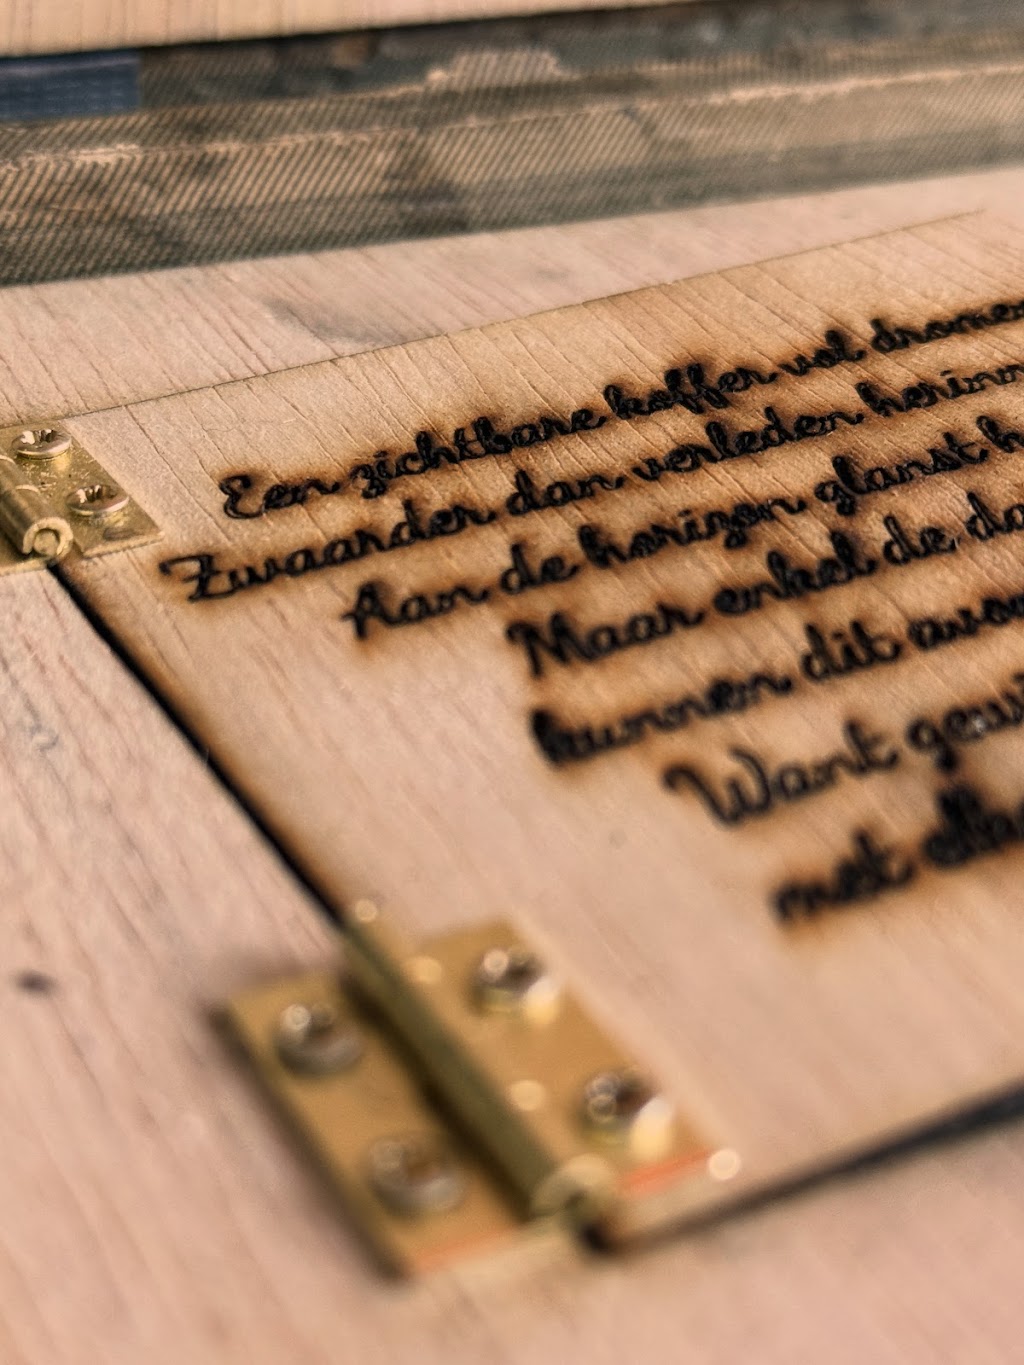 Een zichtbare koffer vol dromen
Zwaarder dan verleden herinn
Aan de horizon glanst h
Maar enkel de da
kunnen dit avo
Want gewi
met elka